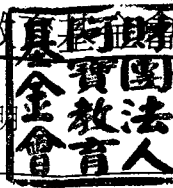 財團法人
寶教育
基金會